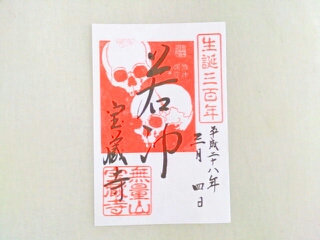 生誕三百年
平成二十八年
三月四日
若冲
宝蔵寺
無量山
宝蔵寺